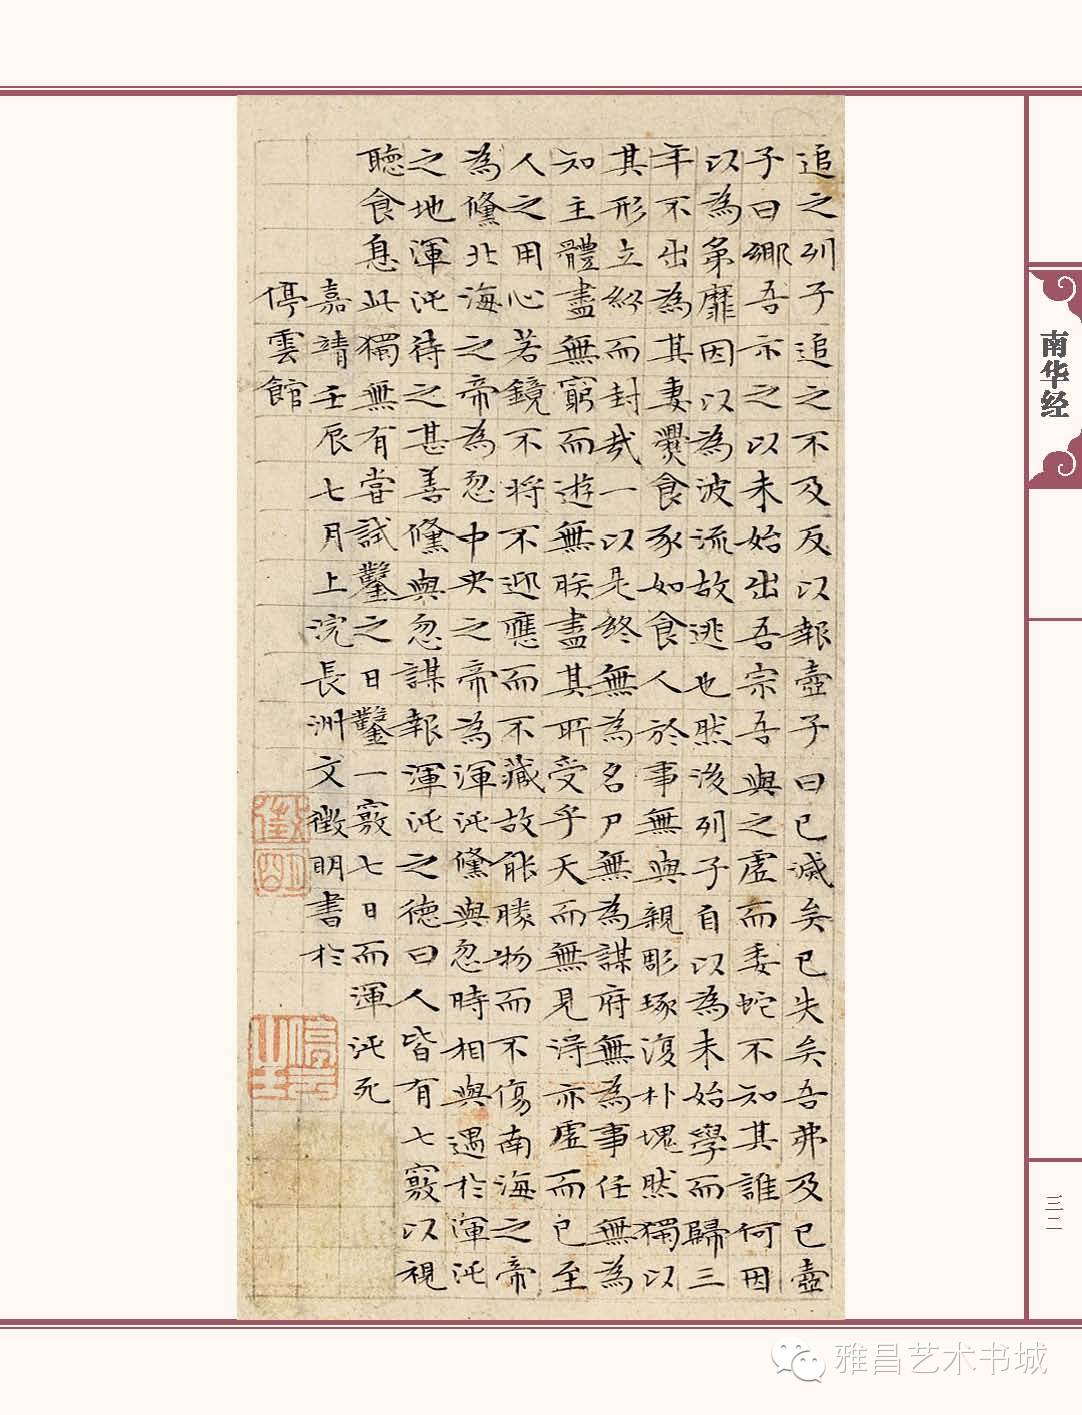 追之列子追之不及反以報壺子曰已滅矣已失矣吾弗及已壺
子曰鄉吾示之以未始出吾宗吾與之虛而委蛇不知其誰何因
以為弟靡因以為波流故逃也然後列子自以為未始學而歸三
年不出為其妻爨食豕如食人於事無與親彫琢復朴塊然獨以
其形立紛而封哉一以是終無為名尸無為謀府無為事任無為
知主體盡無窮而遊無朕盡其所受乎天而無見得亦虛而已至
人之用心若鏡不將不迎應而不藏故能勝物而不傷南海之帝
為儵北海之帝為忽中央之帝為渾沌儵與忽時相與遇於渾沌
之地渾沌待之甚善儵與忽謀報渾沌之德曰人皆有七竅以視
聽食息此獨無有嘗試鑿之日鑿一竅七日而渾沌死
嘉靖壬辰七月上浣長洲文徵明書於
停雲館
徵明
南华经
三二
雅昌艺术书城